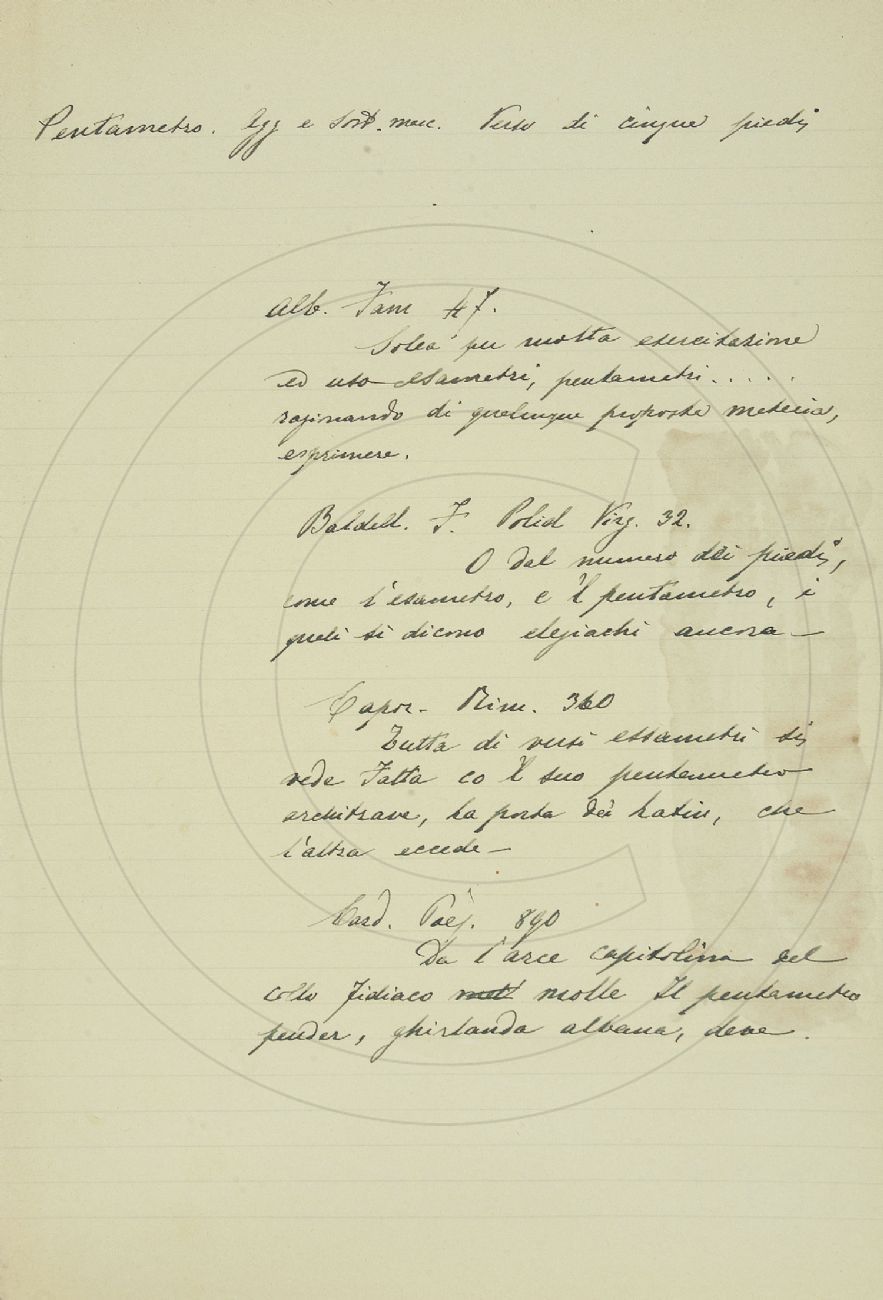 Pentametro. Agg e Sost. masc. Verso di cinque piedi
Alb. Fam 47.
Solea per molta esercitazione
ed uso esametri, pentametri.....
ragionando di qualunque proposta materia,
esprimere.
Baldell. F. Polid Virg. 32.
O dal numero dei piedi,
come l'esametro, e 'l pentametro, i
quali si dicono elegiachi ancora—
Capor. Rim. 360
Tutta di versi essametri si
vede Fatta co 'l suo pentametro
architrave, La porta dei Latin, che
l'altra eccede—
Card. Poes. 890
Da l'arce capitolina del
collo fidiaco molle Il pentametro
pender, ghirlanda albana, deve.